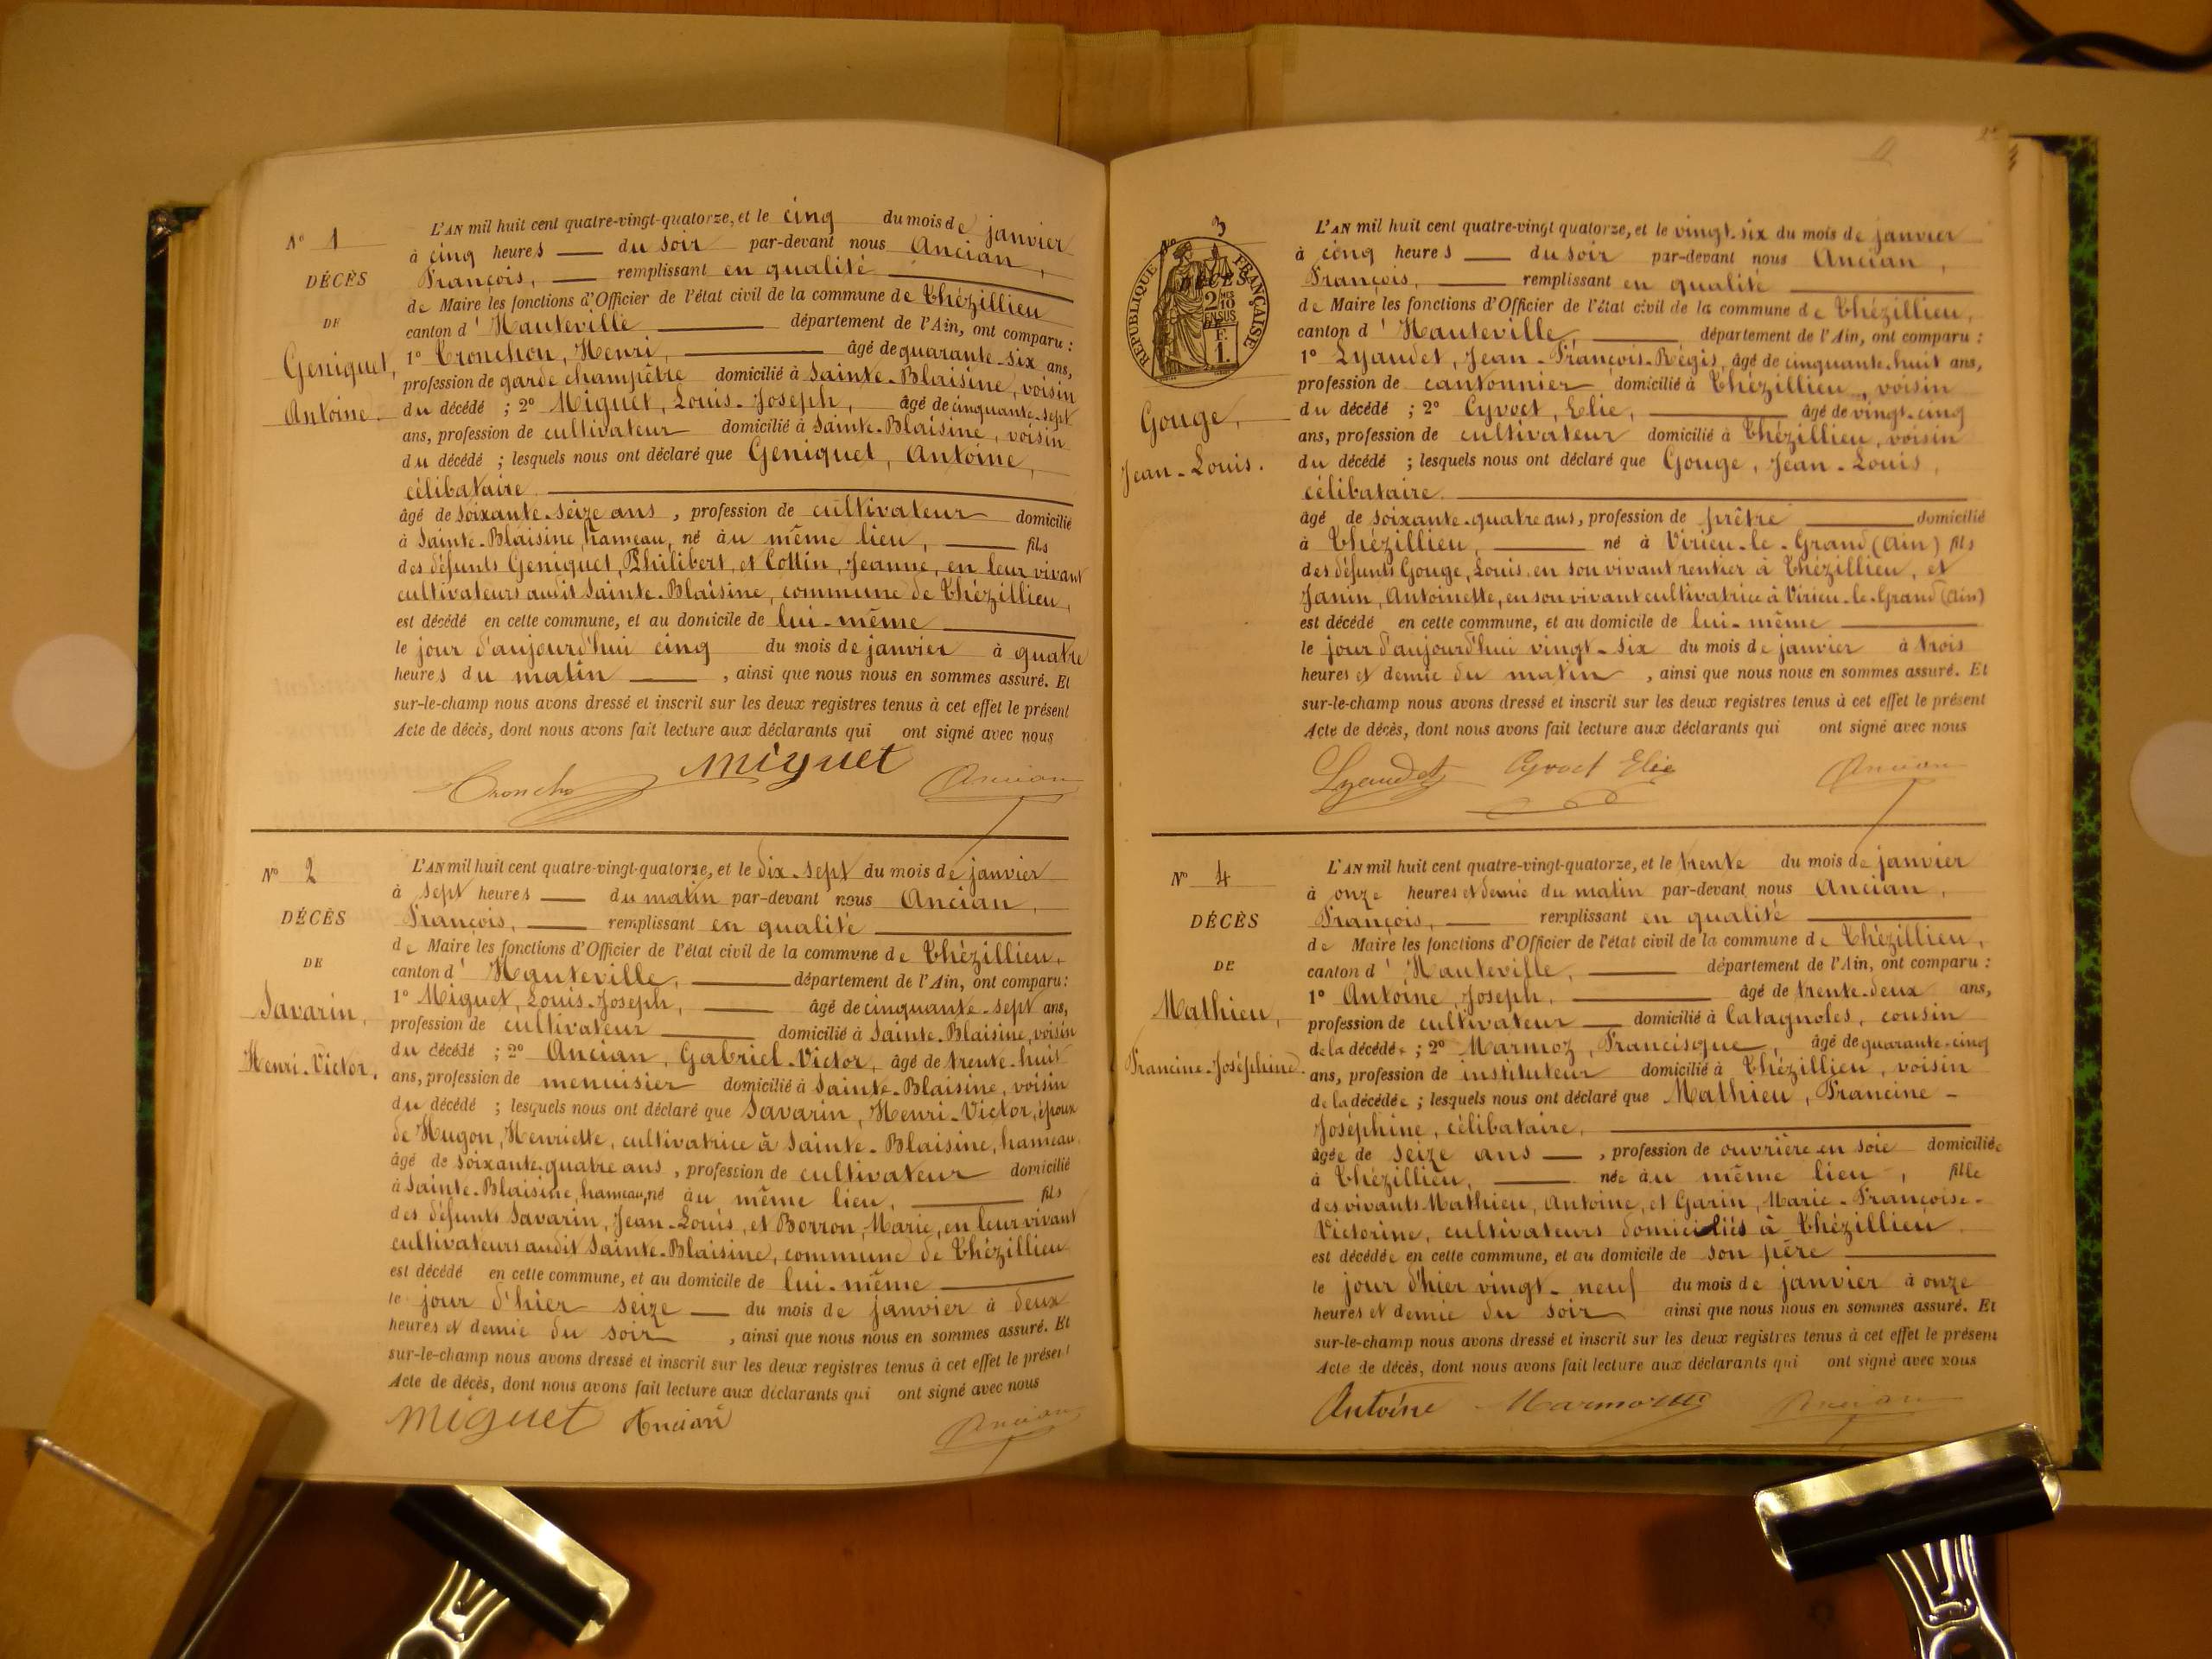 N° 1
DÉCÈS
DE
Geniquet,
Antoine.
L'AN mil huit cent quatre-vingt-quatorze, et le cinq du mois de janvier
à cinq heures du soir par-devant nous Ancian,
François, remplissant en qualité
de Maire les fonctions d'Officier de l'état civil de la commune de Thézillieu
canton d'Hauteville département de l'Ain, ont comparu :
1° Tronchon, Henri, âgé de quarante-six ans,
profession de garde champêtre domicilié à Sainte-Blaisine, voisin
du décédé ; 2° Miguet, Louis-Joseph, âgé de cinquante-sept
ans, profession de cultivateur domicilié à Sainte-Blaisine, voisin
du décédé ; lesquels nous ont déclaré que Geniquet, Antoine,
célibataire
âgé de soixante-seize ans, profession de cultivateur domicilié
à Sainte-Blaisine, hameau, né au même lieu, fils
des défunts Geniquet, Philibert, et Cottin, Jeanne, en leur vivant
cultivateurs audit Sainte-Blaisine, commune de Thézillieu,
est décédé en cette commune, et au domicile de lui-même
le jour d'aujourd'hui cinq du mois de janvier à quatre
heures du matin, ainsi que nous nous en sommes assuré. Et
sur-le-champ nous avons dressé et inscrit sur les deux registres tenus à cet effet le présent
Acte de décès, dont nous avons fait lecture aux déclarants qui ont signé avec nous
Troncho Miguet Ancian
N° 2
DÉCÈS
DE
Savarin,
Henri-Victor.
L'AN mil huit cent quatre-vingt-quatorze, et le dix-sept du mois de janvier
à sept heures du matin par-devant nous Ancian,
François, remplissant en qualité
de Maire les fonctions d'Officier de l'état civil de la commune de Thézillieu,
canton d'Hauteville, département de l'Ain, ont comparu :
1° Miguet, Louis-Joseph, âgé de cinquante-sept ans,
profession de cultivateur domicilié à Sainte-Blaisine, voisin
du décédé ; 2° Ancian, Gabriel-Victor, âgé de trente-huit
ans, profession de menuisier domicilié à Sainte-Blaisine, voisin
du décédé ; lesquels nous ont déclaré que Savarin, Henri-Victor, époux
de Hugon, Henriette, cultivatrice à Sainte-Blaisine, hameau,
âgé de soixante-quatre ans, profession de cultivateur domicilié
à Sainte-Blaisine, hameau, né au même lieu, fils
des défunts Savarin, Jean-Louis, et Borron, Marie, en leur vivant
cultivateurs audit Sainte-Blaisine, commune de Thézillieu
est décédé en cette commune, et au domicile de lui-même
le jour d'hier seize du mois de janvier à deux
heures et demie du soir, ainsi que nous nous en sommes assuré. Et
sur-le-champ nous avons dressé et inscrit sur les deux registres tenus à cet effet le présent
Acte de décès, dont nous avons fait lecture aux déclarants qui ont signé avec nous
Miguet Ancian Ancian
N° 3
RÉPUBLIQUE FRANÇAISE
DÉCÈS
2/10 EN SUS
F. 1.
Gouge,
Jean-Louis.
L'AN mil huit cent quatre-vingt quatorze, et le vingt-six du mois de janvier
à cinq heures du soir par-devant nous Ancian,
François, remplissant en qualité
de Maire les fonctions d'Officier de l'état civil de la commune de Thézillieu,
canton d'Hauteville département de l'Ain, ont comparu :
1° Lyaudet, Jean-François-Régis, âgé de cinquante-huit ans,
profession de cantonnier domicilié à Thézillieu, voisin
du décédé ; 2° Cyvoct, Elie, âgé de vingt-cinq
ans, profession de cultivateur domicilié à Thézillieu, voisin
du décédé ; lesquels nous ont déclaré que Gouge, Jean-Louis,
célibataire.
âgé de soixante-quatre ans, profession de prêtre domicilié
à Thézillieu, né à Virieu-le-Grand (Ain) fils
des défunts Gouge, Louis, en son vivant rentier à Thézillieu, et
Janin, Antoinette, en son vivant cultivatrice à Virieu-le-Grand (Ain)
est décédé en cette commune, et au domicile de lui-même
le jour d'aujourd'hui vingt-six du mois de janvier à trois
heures et demie du matin, ainsi que nous nous en sommes assuré. Et
sur-le-champ nous avons dressé et inscrit sur les deux registres tenus à cet effet le présent
Acte de décès, dont nous avons fait lecture aux déclarants qui ont signé avec nous
Lyaudet Cyvoct Elie Ancian
N° 4
DÉCÈS
DE
Mathieu,
Francine-Joséphine.
L'AN mil huit cent quatre-vingt-quatorze, et le trente du mois de janvier
à onze heures et demie du matin par-devant nous Ancian,
François, remplissant en qualité
de Maire les fonctions d'Officier de l'état civil de la commune de Thézillieu,
canton d'Hauteville, département de l'Ain, ont comparu :
1° Antoine, Joseph, âgé de trente-deux ans,
profession de cultivateur domicilié à Catagnoles, cousin
de la décédée ; 2° Marmoz, Francisque, âgé de quarante-cinq
ans, profession de instituteur domicilié à Thézillieu, voisin
de la décédée ; lesquels nous ont déclaré que Mathieu, Francine-
Joséphine, célibataire,
âgée de seize ans, profession de ouvrière en soie domiciliée
à Thézillieu, née au même lieu, fille
des vivants Mathieu, Antoine, et Garin, Marie-Françoise-
Victorine, cultivateurs domiciliés à Thézillieu
est décédée en cette commune, et au domicile de son père
le jour d'hier vingt-neuf du mois de janvier à onze
heures et demie du soir ainsi que nous nous en sommes assuré. Et
sur-le-champ nous avons dressé et inscrit sur les deux registres tenus à cet effet le présent
Acte de décès, dont nous avons fait lecture aux déclarants qui ont signé avec nous
Antoine Marmoz Ancian